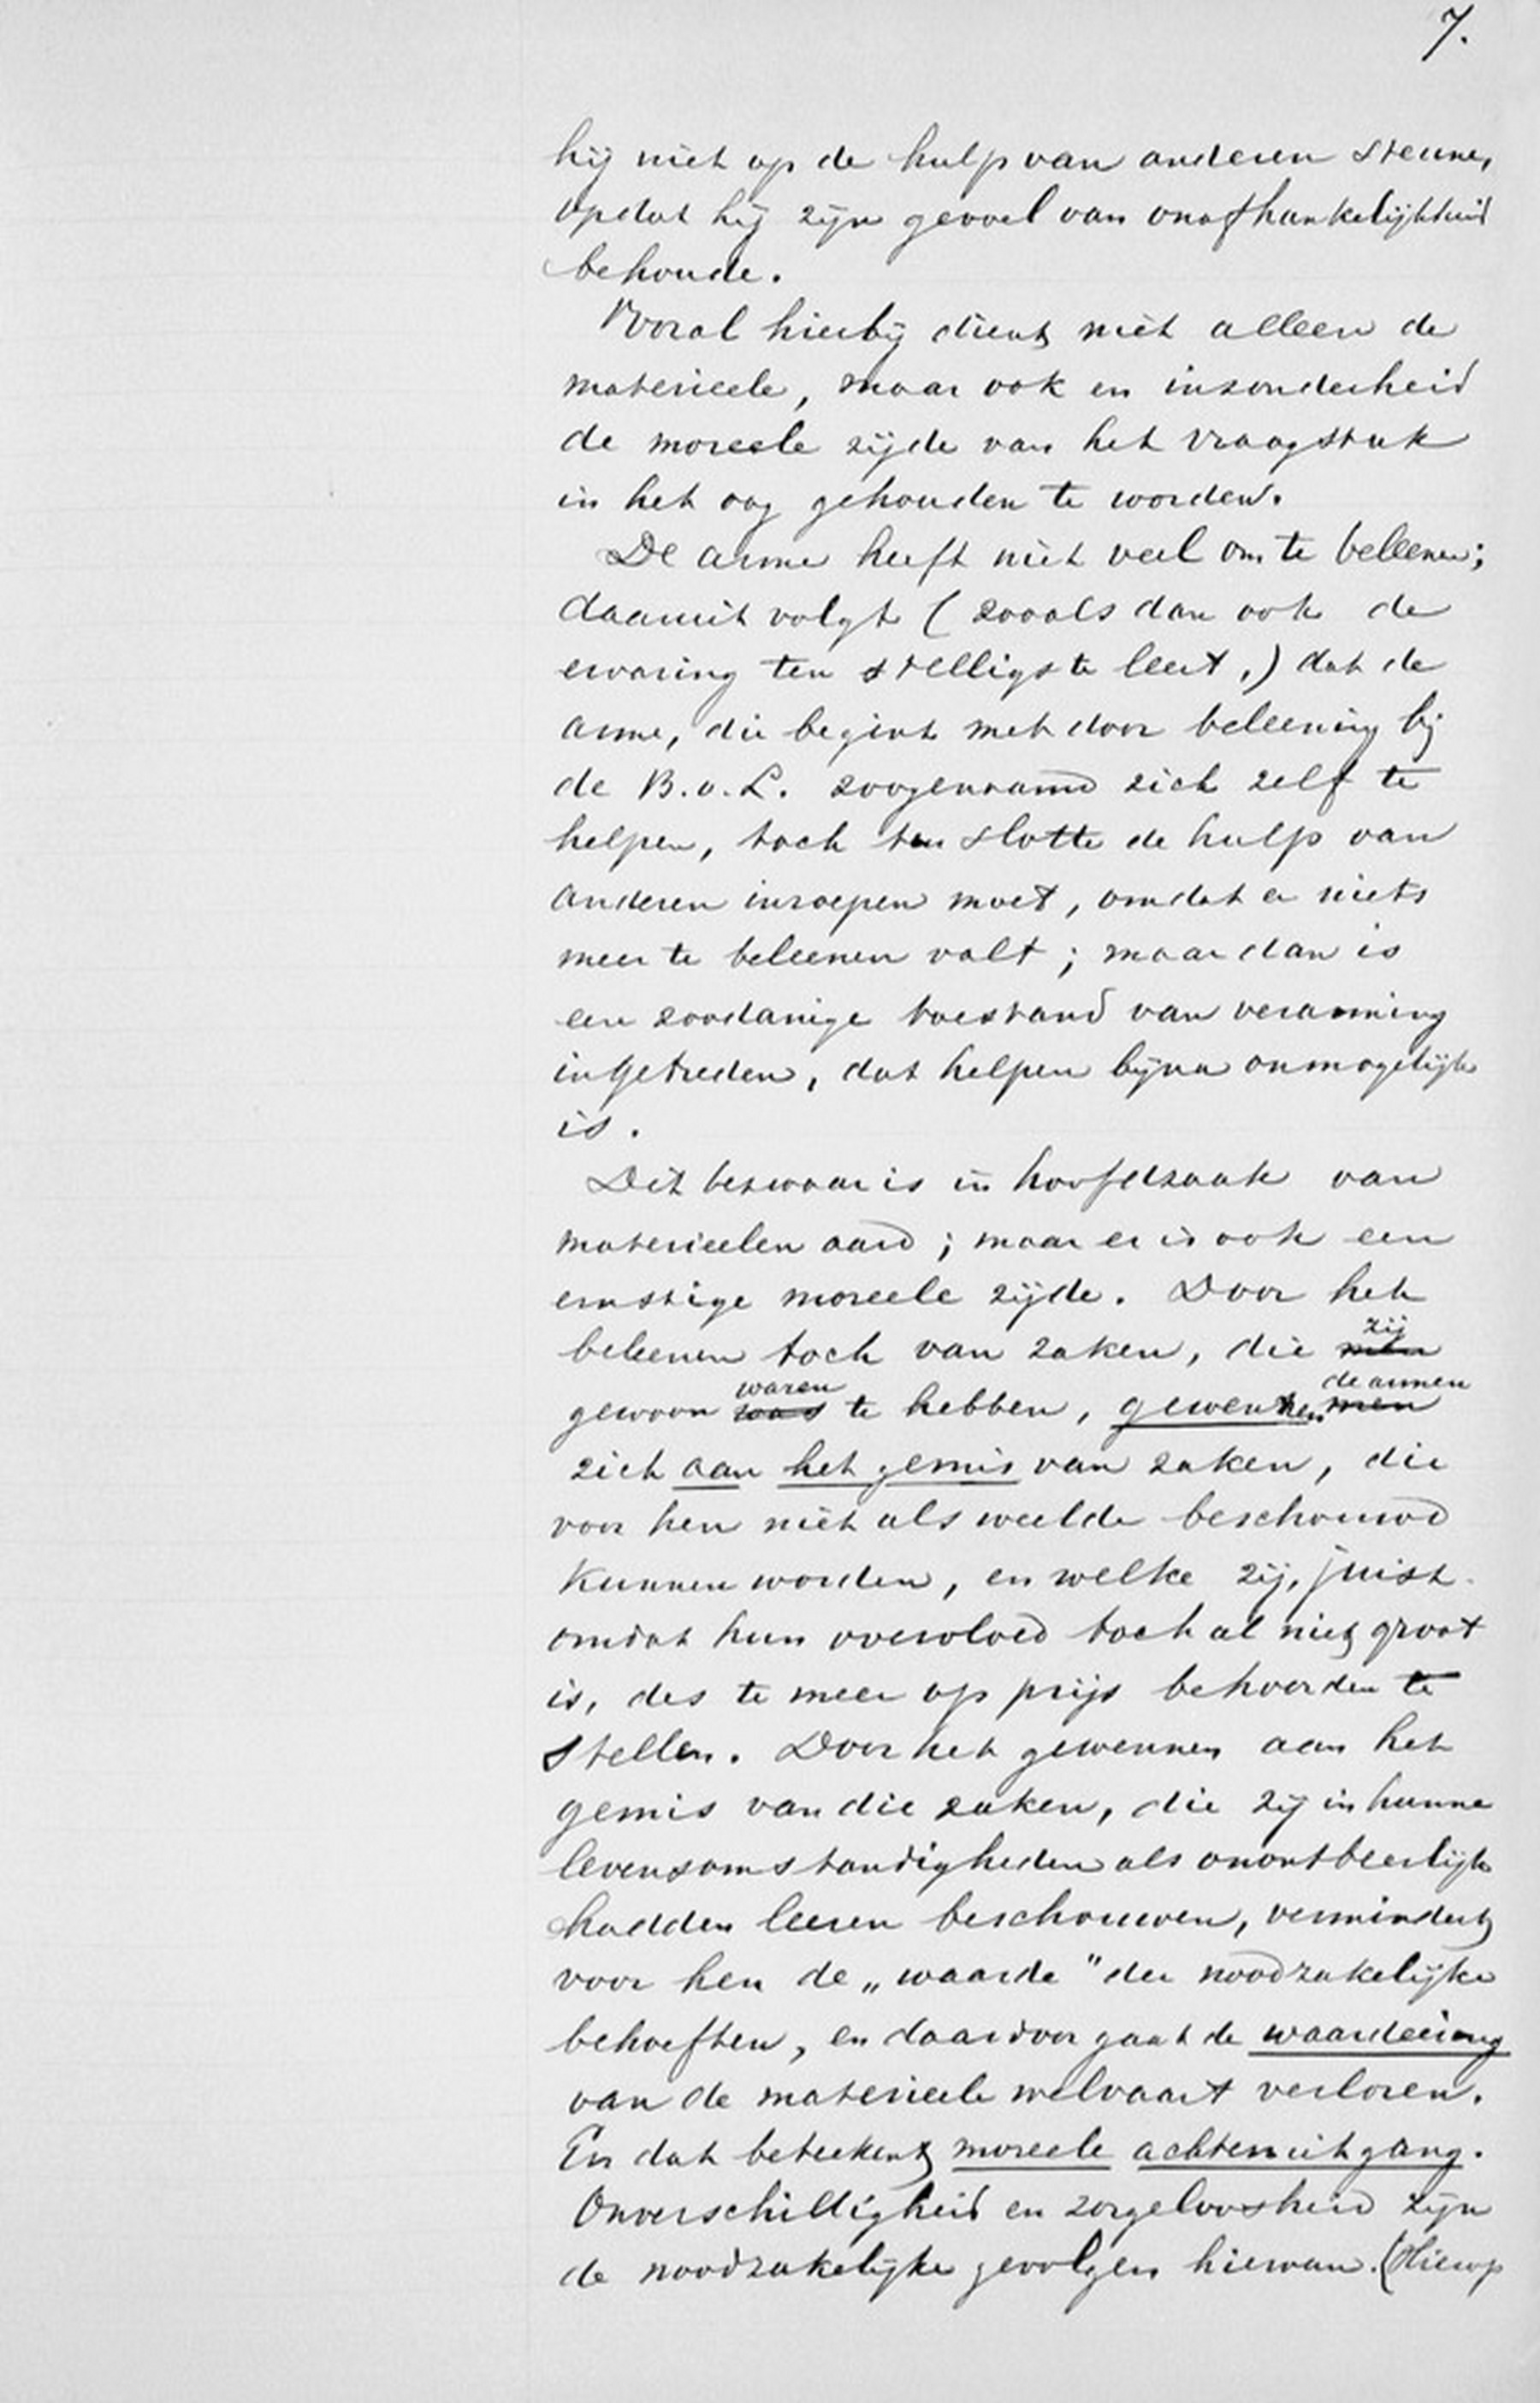 7.
hij niet op de hulp van anderen steune,
opdat hij zijn gevoel van onafhankelijkheid
behoude.
Vooral hierbij dient niet alleen de
materieele, maar ook en inzonderheid
de moreele zijde van het vraagstuk
in het oog gehouden te worden.
De arme heeft niet veel om te beleenen;
daaruit volgt (zooals dan ook de
ervaring ten stelligste leert,) dat de
arme, die begint met door beleening bij
de B.v.L. zoogenaamd zich zelf te
helpen, toch ten slotte de hulp van
anderen inroepen moet, omdat er niets
meer te beleenen valt; maar dan is
een zoodanige toestand van verarming
ingetreden, dat helpen bijna onmogelijk
is.
Dit bezwaar is in hoofdzaak van
materieelen aard; maar er is ook een
ernstige moreele zijde. Door het
zij
beleenen toch van zaken, die men
waren de armen
gewoon was te hebben, gewennen men
zich aan het gemis van zaken, die
voor hen niet als weelde beschouwd
kunnen worden, en welke zij, juist
omdat hun overvloed toch al niet groot
is, des te meer op prijs behoorden te
stellen. Door het gewennen aan het
gemis van die zaken, die zij in hunne
levensomstandigheden als onontbeerlijk
hadden leeren beschouwen, vermindert
voor hen de „waarde" der noodzakelijke
behoeften, en daardoor gaat de waardeering
van de materieele welvaart verloren.
En dat beteekent moreele achteruitgang.
Onverschilligheid en zorgeloosheid zijn
de noodzakelijke gevolgen hiervan. (Hierop